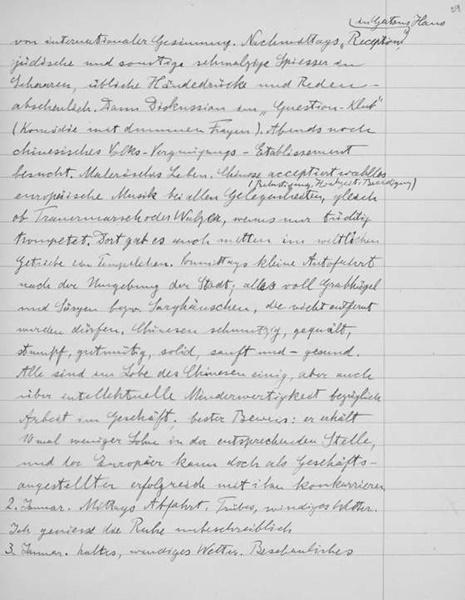 29
in Gartens Haus
von internationaler Gesinnung. Nachmittags „Reception",
jüdische und sonstige schmalzige Spiesser in
Scharen, übliche Händedrücke und Reden –
abscheulich. Dann Diskussion im „Question-Klub"
(Komödie mit dummen Fragen). Abends noch
chinesisches Volks-Vergnügungs-Etablissement
besucht. Malerisches Leben. Chinese acceptiert wahllos
(Belustigung, Hochzeit, Beerdigung)
europäische Musik bei allen Gelegenheiten, gleich
ob Trauermarsch oder Walzer, wenns nur tüchtig
trompetet. Dort gab es auch mitten im weltlichen
Getriebe ein Tempelchen. Vormittags kleine Autofahrt
nach der Umgebung der Stadt, alles voll Grabhügel
und Särgen bezw. Sarghäuschen, die nicht entfernt
werden dürfen. Chinesen schmutzig, gequält,
stumpf, gutmütig, solid, sanft und – gesund.
Alle sind im Lobe des Chinesen einig, aber auch
über intellektuelle Minderwertigkeit bezüglich
Arbeit im Geschäft; bester Beweis: er erhält
10 mal weniger Lohn in der entsprechenden Stelle,
und der Europäer kann doch als Geschäfts-
angestellter erfolgreich mit ihm konkurrieren
2. Januar. Mittags Abfahrt. Trübes, windiges Wetter.
Ich geniesse die Ruhe unbeschreiblich
3. Januar. kaltes, windiges Wetter. Beschauliches